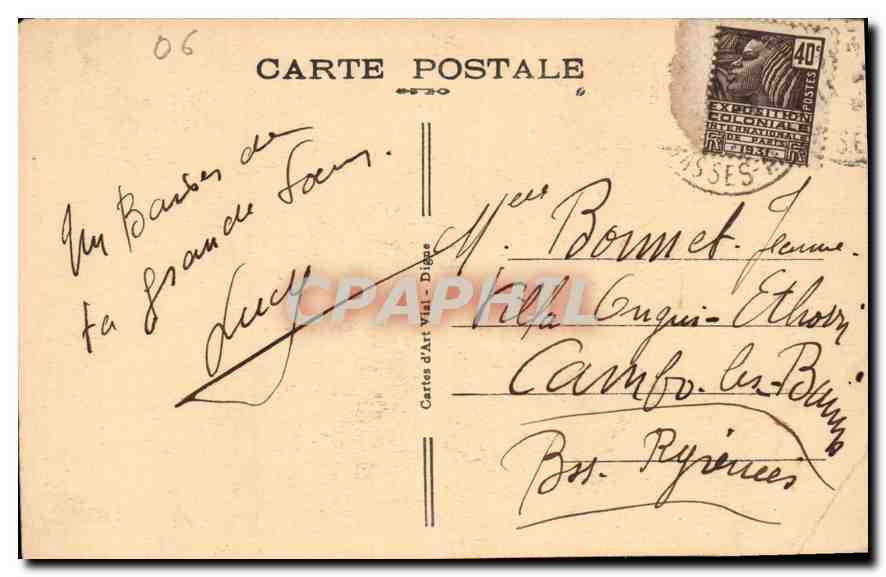 06
CARTE POSTALE
40c
POSTES
EXPOSITION
COLONIALE
INTERNATIONALE
DE PARIS
1931
ASSES-
Un Baiser de
ta grande Soeur.
Lucy
CPAPHIL
Cartes d'Art Vial - Digne
Melle Bonnet Jeanne
Villa Ongui-Ethorri
Cambo-les-Bains
Bses Pyrénées